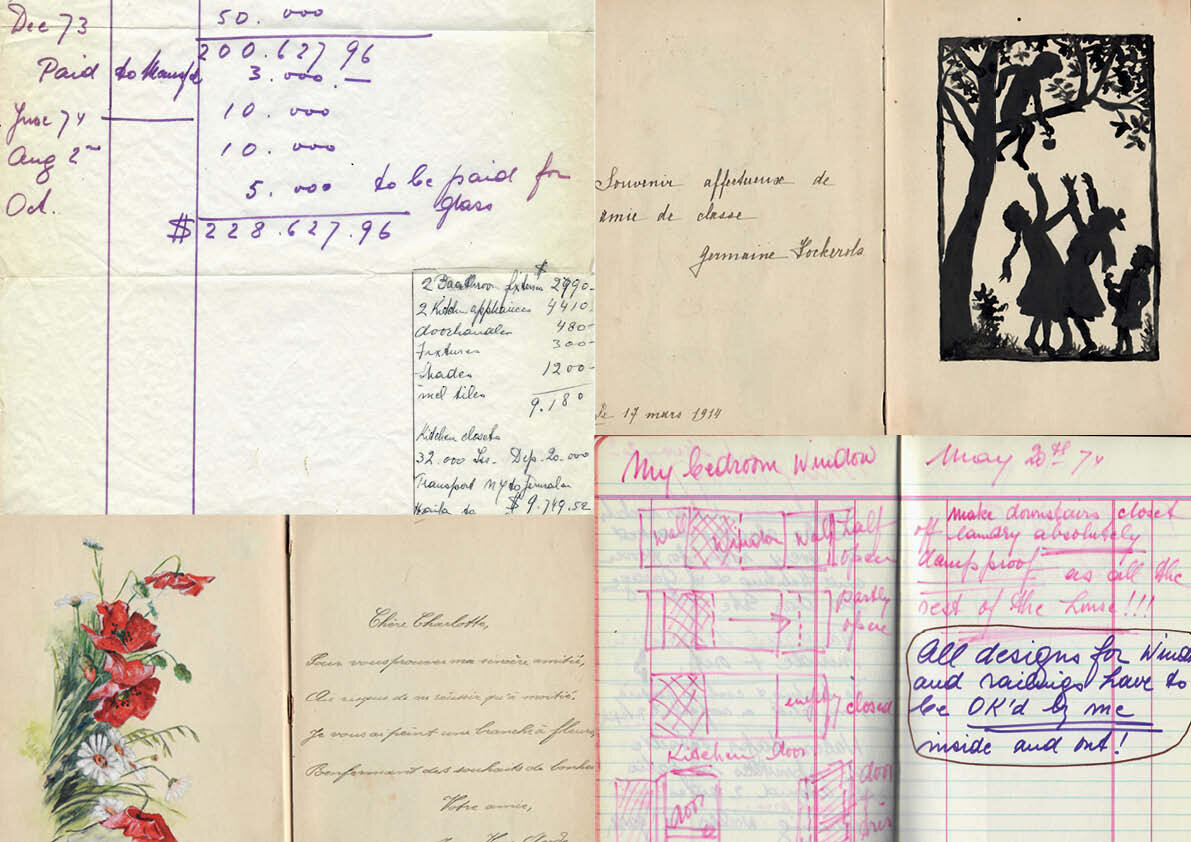 Dec 73
50.000
200.627 96
Paid to
3.000.—
June 74
10.000
Aug 2nd
10.000
Oct.
5.000 to be paid for
glass
$ 228.627.96
$
2 fixtures 2990-
2 Kitchen appliances 4410.
doorhandles 480-
Fixtures 300-
Shades 1200-
tiles
9.180
Kitchen closets
32.000 Isr. Dep. 20.000
Transport NY to Jerusalem
Haifa to $ 9.749.52
Souvenir affectueux de
amie de classe
Germaine
le 17 mars 1914
Chère Charlotte,
Pour vous prouver ma sincère amitié,
Au risque de ne réussir qu'à moitié,
Je vous ai peint une branche à fleurs
Renfermant des souhaits de
Votre amie,
My bedroom Window
Wall Window Wall half
open
Partly
open
empty closed
Kitchen door
door
door
May 20th 74
make downstairs closet
off laundry absolutely
dampproof as all the
rest of the house!!!
All designs for
and railings have to
be OK'd by me
inside and out!